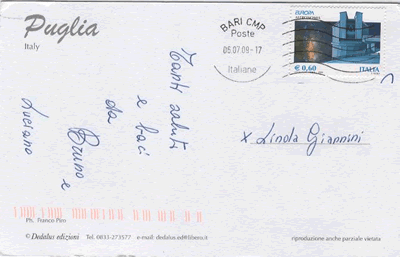 Puglia
Italy
Tanti saluti
e baci
da
Bruno e
Luciano
BARI CMP
Poste
06.07.09 - 17
Italiane
EUROPA
€ 0,60
ITALIA
x Linola Giannini
Ph. Franco Pini
© Dedalus edizioni Tel. 0833-273577 e-mail: dedalus.ed@libero.it
riproduzione anche parziale vietata